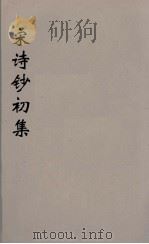 宋诗钞初集
mtoou.info